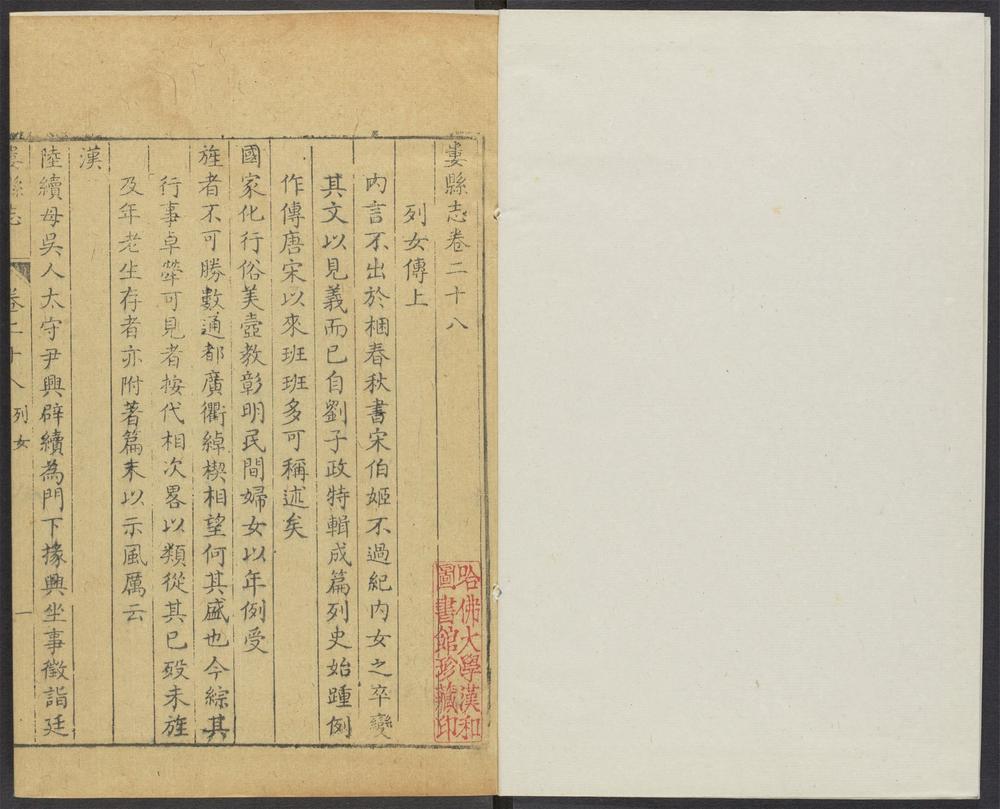 婁縣志卷二十八
列女傳上
內言不出於梱春秋書宋伯姬不過紀內女之卒變
其文以見義而已自劉子政特輯成篇列史始踵例
作傳唐宋以來班班多可稱述矣
國家化行俗美壼教彰明民間婦女以年例受
旌者不可勝數通都廣衢綽楔相望何其盛也今綜其
行事卓犖可見者按代相次畧以類從其已歿未旌
及年老生存者亦附著篇末以示風厲云
漢
陸續母吳人太守尹興辟續為門下掾興坐事徵詣廷
婁縣志 卷二十八 列女 一
哈佛大學漢和
圖書館珍藏印